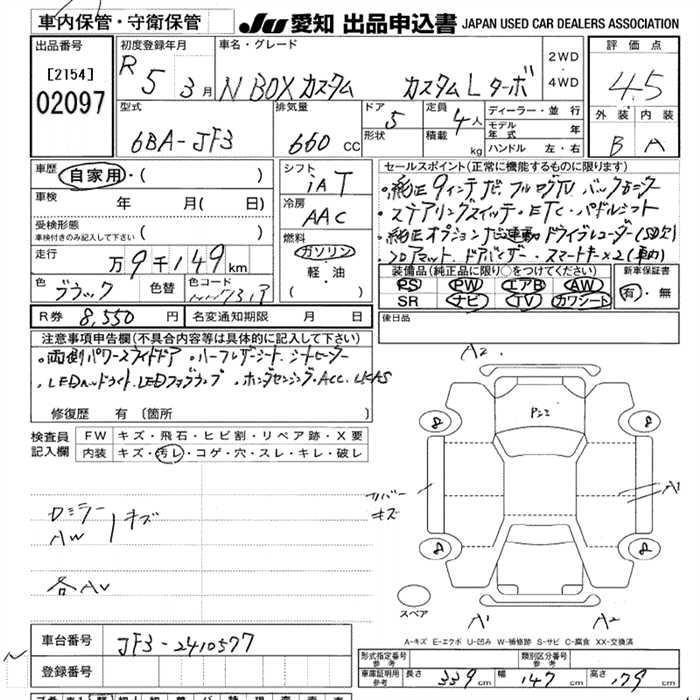 車内保管・守衛保管
JU 愛知 出品申込書 JAPAN USED CAR DEALERS ASSOCIATION
出品番号
[2154]
02097
初度登録年月
R 5 3月
車名・グレード
N BOX カスタム カスタムL ターボ
2WD
・
4WD
評価点
4.5
外装 内装
B A
型式
6BA-JF3
排気量
660 cc
ドア 5
形状
定員 4人
積載 kg
ディーラー・並行
モデル年式 年
ハンドル 左・右
車歴 自家用・( )
車検 年 月( 日)
受検形態
車検付きのみ記入して下さい ( )
走行 万9千149km
色 ブラック 色替 色コード
シフト
iA T
冷房
AAC
燃料
ガソリン
・
軽・油
( )
セールスポイント(正常に機能するものに限ります)
・純正9インチナビ フルセグTV バックカメラ
・ステアリングスイッチ・ETC・パドルシフト
・純正オプションナビ連動 ドライブレコーダー(SD欠)
・フロアマット・ドアバイザー・スマートキー×2(車内)
装備品(純正品に限り○をつけてください)
PS PW エアB AW
SR ナビ TV カワシート
新車保証書
有・無
R券 8,550 円 名変通知期限 月 日
後日品
注意事項申告欄(不具合内容等は具体的に記入して下さい)
・両側パワースライドドア ・ハーフレザーシート シートヒーター
・LEDヘッドライト LEDフォグランプ ・ホンダセンシング・ACC・LKAS
修復歴 有 〔箇所 〕
検査員
記入欄
FW キズ・飛石・ヒビ割・リペア跡・X要
内装 キズ・汚レ・コゲ・穴・スレ・キレ・破レ
ロミラー
AW
キズ
各AW
A2
8
8
8
8
A1
カバー
キズ
スペア
A1
A2
A-キズ E-エクボ U-凹み W-補修跡 S-サビ C-腐食 XX-交換済
車台番号 JF3-2410577
登録番号
形式指定番号 参考
類別区分番号 参考
車庫証明用 参考 長さ 339cm 幅 147cm 高さ 179cm